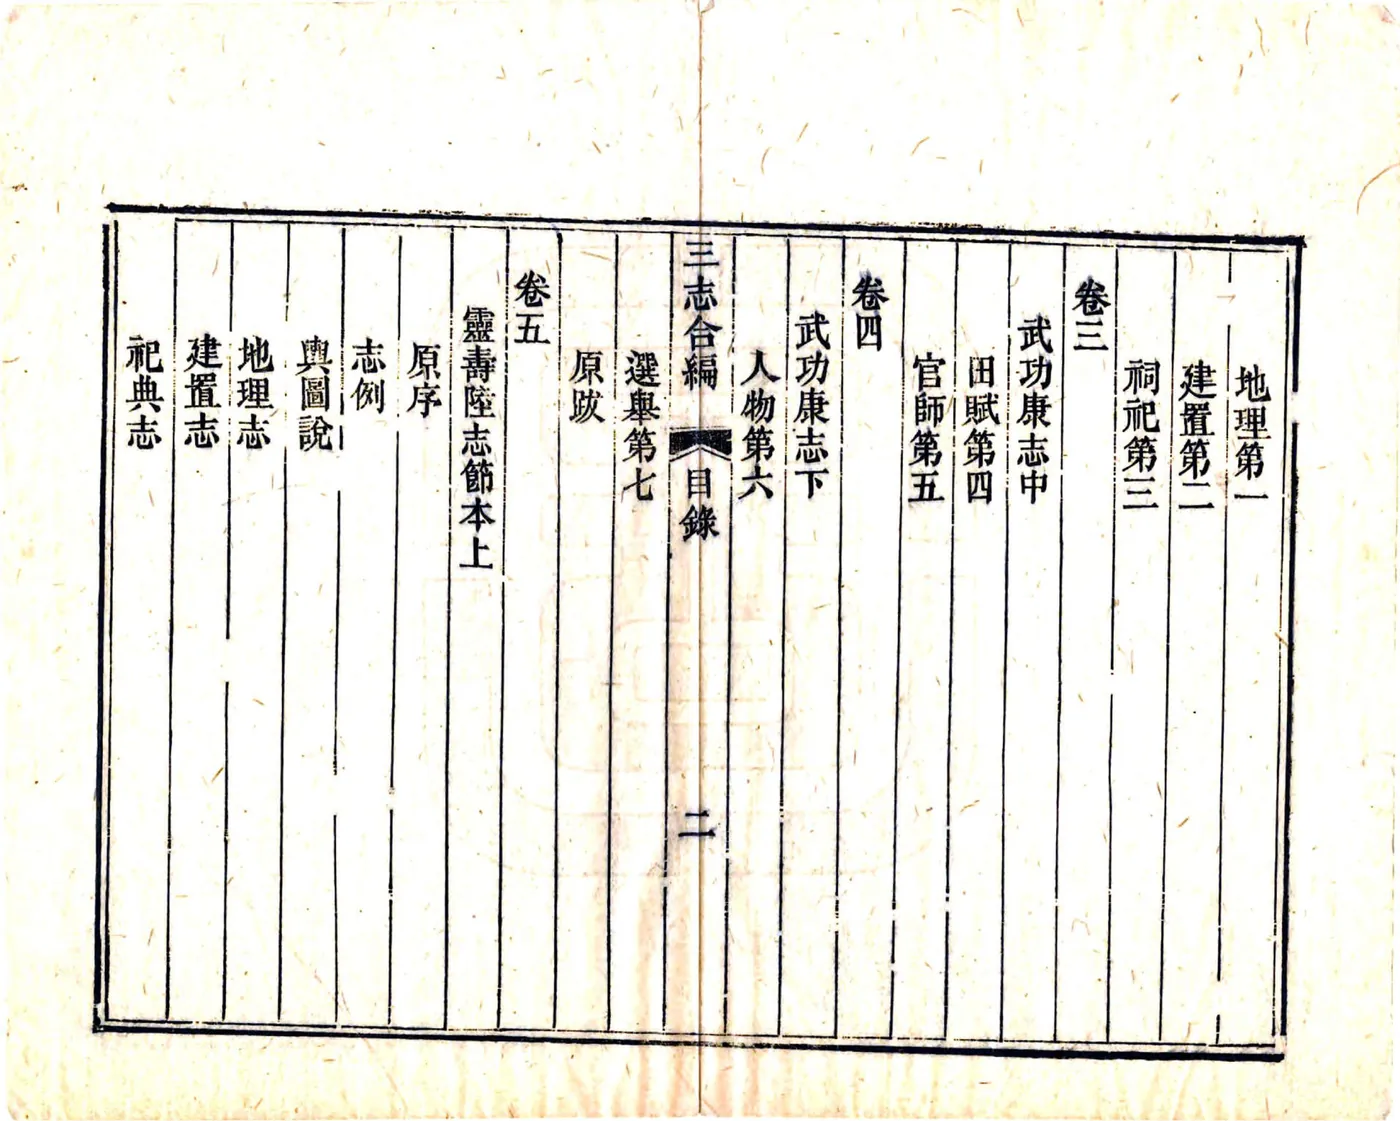 地理第一
建置第二
祠祀第三
卷三
武功康志中
田賦第四
官師第五
卷四
武功康志下
人物第六
三志合編
目錄
二
選舉第七
原跋
卷五
靈壽陸志節本上
原序
志例
輿圖說
地理志
建置志
祀典志